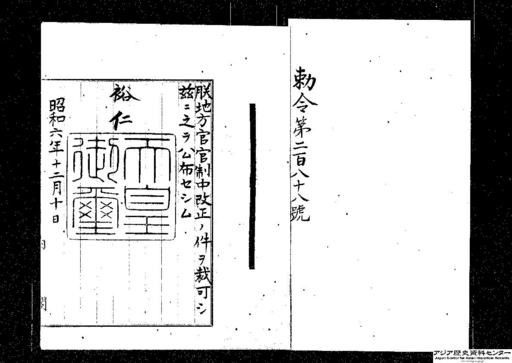 勅令第二百八十八號
朕地方官官制中改正ノ件ヲ裁可シ
茲ニ之ヲ公布セシム
裕仁
天皇
御璽
昭和六年十二月十日
内閣
アジア歴史資料センター
Japan Center for Asian Historical Records